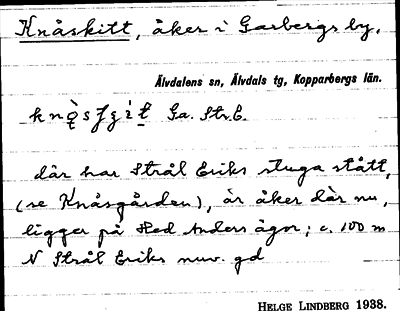 Knåskitt, åker i Garbergs by.
Älvdalens sn, Älvdals tg, Kopparbergs län.
Ga. Str. E.
där har Strål Eriks stuga stått,
(se Knåsgården), är åker där nu,
ligger på Hed Anders ägor; c. 100 m
N Strål Eriks nuv. gd
HELGE LINDBERG 1938.